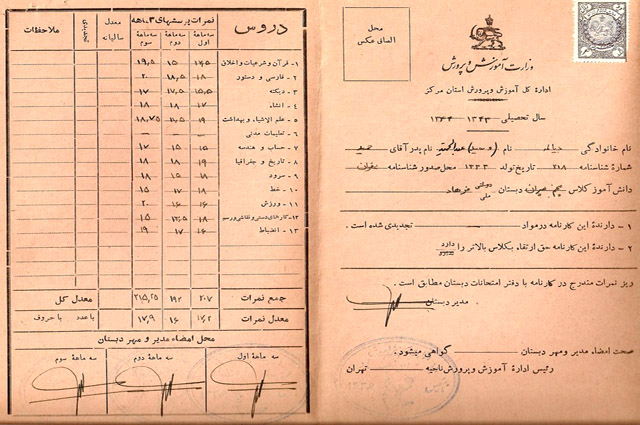 محل
الصاق عکس
وزارت آموزش و پرورش
اداره کل آموزش و پرورش استان مرکز
سال تحصیلی ۱۳۴۳ ۱۳۴۴
نام خانوادگی نام نام پدر آقای
شماره شناسنامه ۲۱۸ تاریخ تولد ۱۳۳۳ محل صدور شناسنامه تهران
دانش آموز کلاس پنجم دبستان دولتی
ملی
۱ - دارنده این کارنامه در مواد تجدیدی شده است .
۲ - دارنده این کارنامه حق ارتقاء بکلاس بالاتر را دارد
ریز نمرات مندرج در کارنامه با دفتر امتحانات دبستان مطابق است .
مدیر دبستان
صحت امضاء مدیر و مهر دبستان گواهی میشود .
رئیس اداره آموزش و پرورش ناحیه تهران
دروس نمرات پرسشهای ۳ ماهه معدل سالیانه تجدیدی ملاحظات
سه ماهه اول سه ماهه دوم سه ماهه سوم
۱ - قرآن و شرعیات و اخلاق ۱۵ ۱۹,۵
۲ - فارسی و دستور ۱۸ ۱۸,۵ ۲۰
۳ - دیکته ۱۵,۵ ۱۷,۵ ۱۷
۴ - انشاء ۱۷ ۱۸ ۱۸
۵ - علم الاشیاء و بهداشت ۱۹ ۱۸,۷۵
۶ - تعلیمات مدنی — — —
۷ - حساب و هندسه ۱۷ ۱۵ ۱۷
۸ - تاریخ و جغرافیا ۱۸ ۱۹ ۱۸
۹ - سرود ۱۸ ۱۵ ۱۸
۱۰ - خط ۱۸ ۱۷ ۱۵
۱۱ - ورزش ۱۶ ۱۶ ۲۰
۱۲ - کارهای دستی و نقاشی و رسم ۱۸ ۱۵
۱۳ - انضباط ۱۶ ۱۷ ۱۹
جمع نمرات ۲۰۷ ۱۹۲ ۲۱۵,۲۵ معدل کل
معدل نمرات ۱۷,۲ ۱۶ ۱۷,۹ با عدد با حروف
محل امضاء مدیر و مهر دبستان
سه ماهه اول سه ماهه دوم سه ماهه سوم